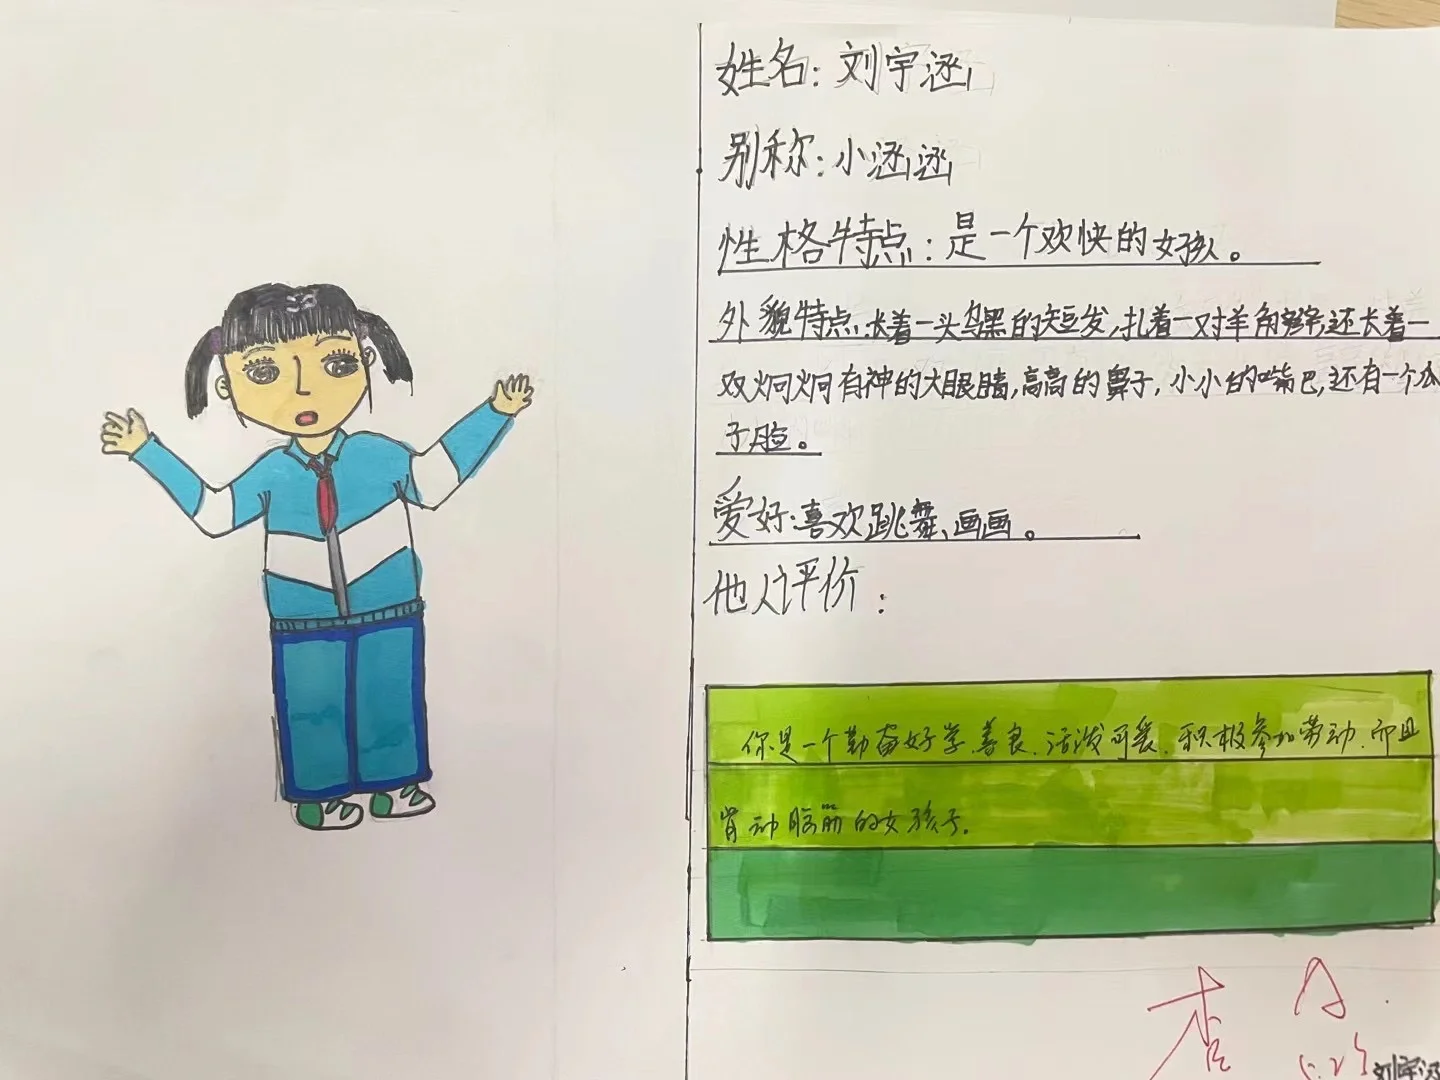 姓名：刘宇涵
别称：小涵涵
性格特点：是一个欢快的女孩。
外貌特点：长着一头乌黑的短发，扎着一对羊角辫，还长着一
双炯炯有神的大眼睛，高高的鼻子，小小的嘴巴，还有一个瓜
子脸。
爱好：喜欢跳舞、画画。
他人评价：
你是一个勤奋好学、善良、活泼可爱、积极参加劳动，而且
肯动脑筋的女孩子。
查
刘宇涵